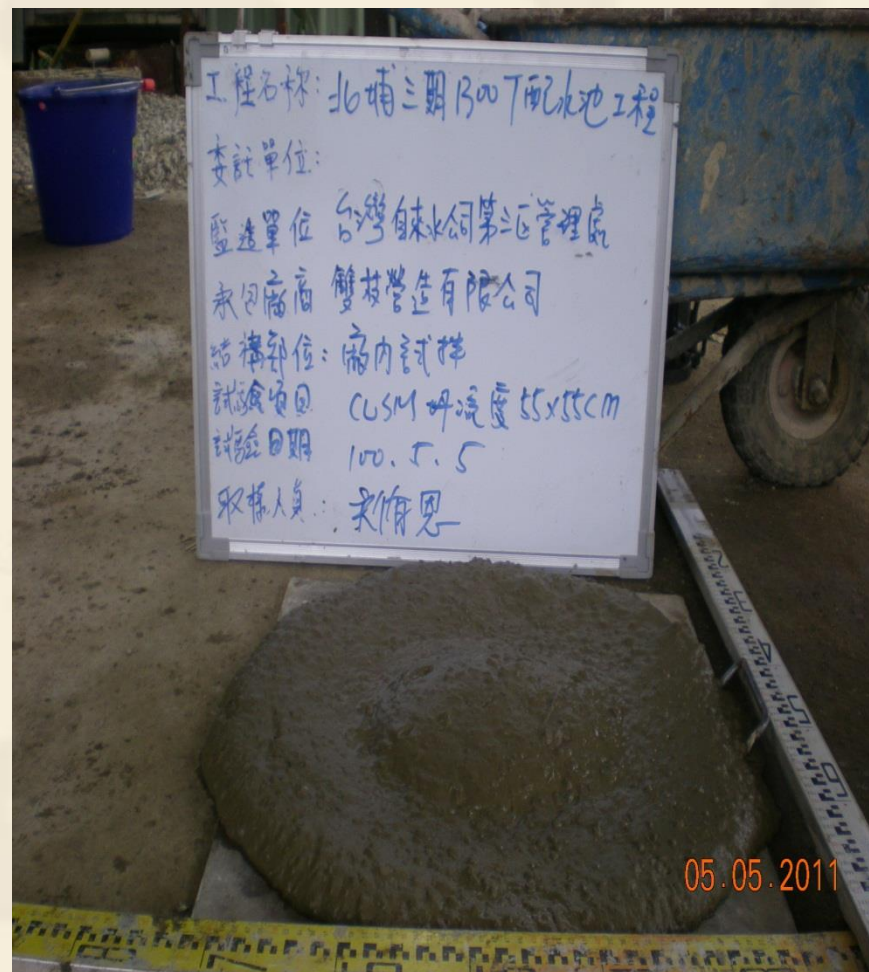 工程名称:北埔三期1300T配水池工程
委託單位:
監造單位 台灣自來水公司第三區管理處
承包廠商 雙枝營造有限公司
結構部位:廠內試拌
試驗項目 CLSM坍流度55x55cm
試驗日期 100.5.5
取樣人員:
05.05.2011